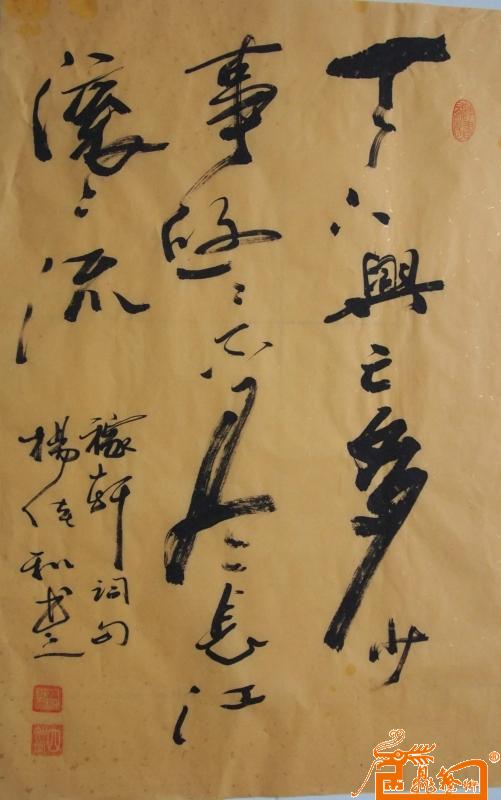 千古興亡多少
事悠〻不盡長江
滾〻流
稼軒詞句
楊佳和書